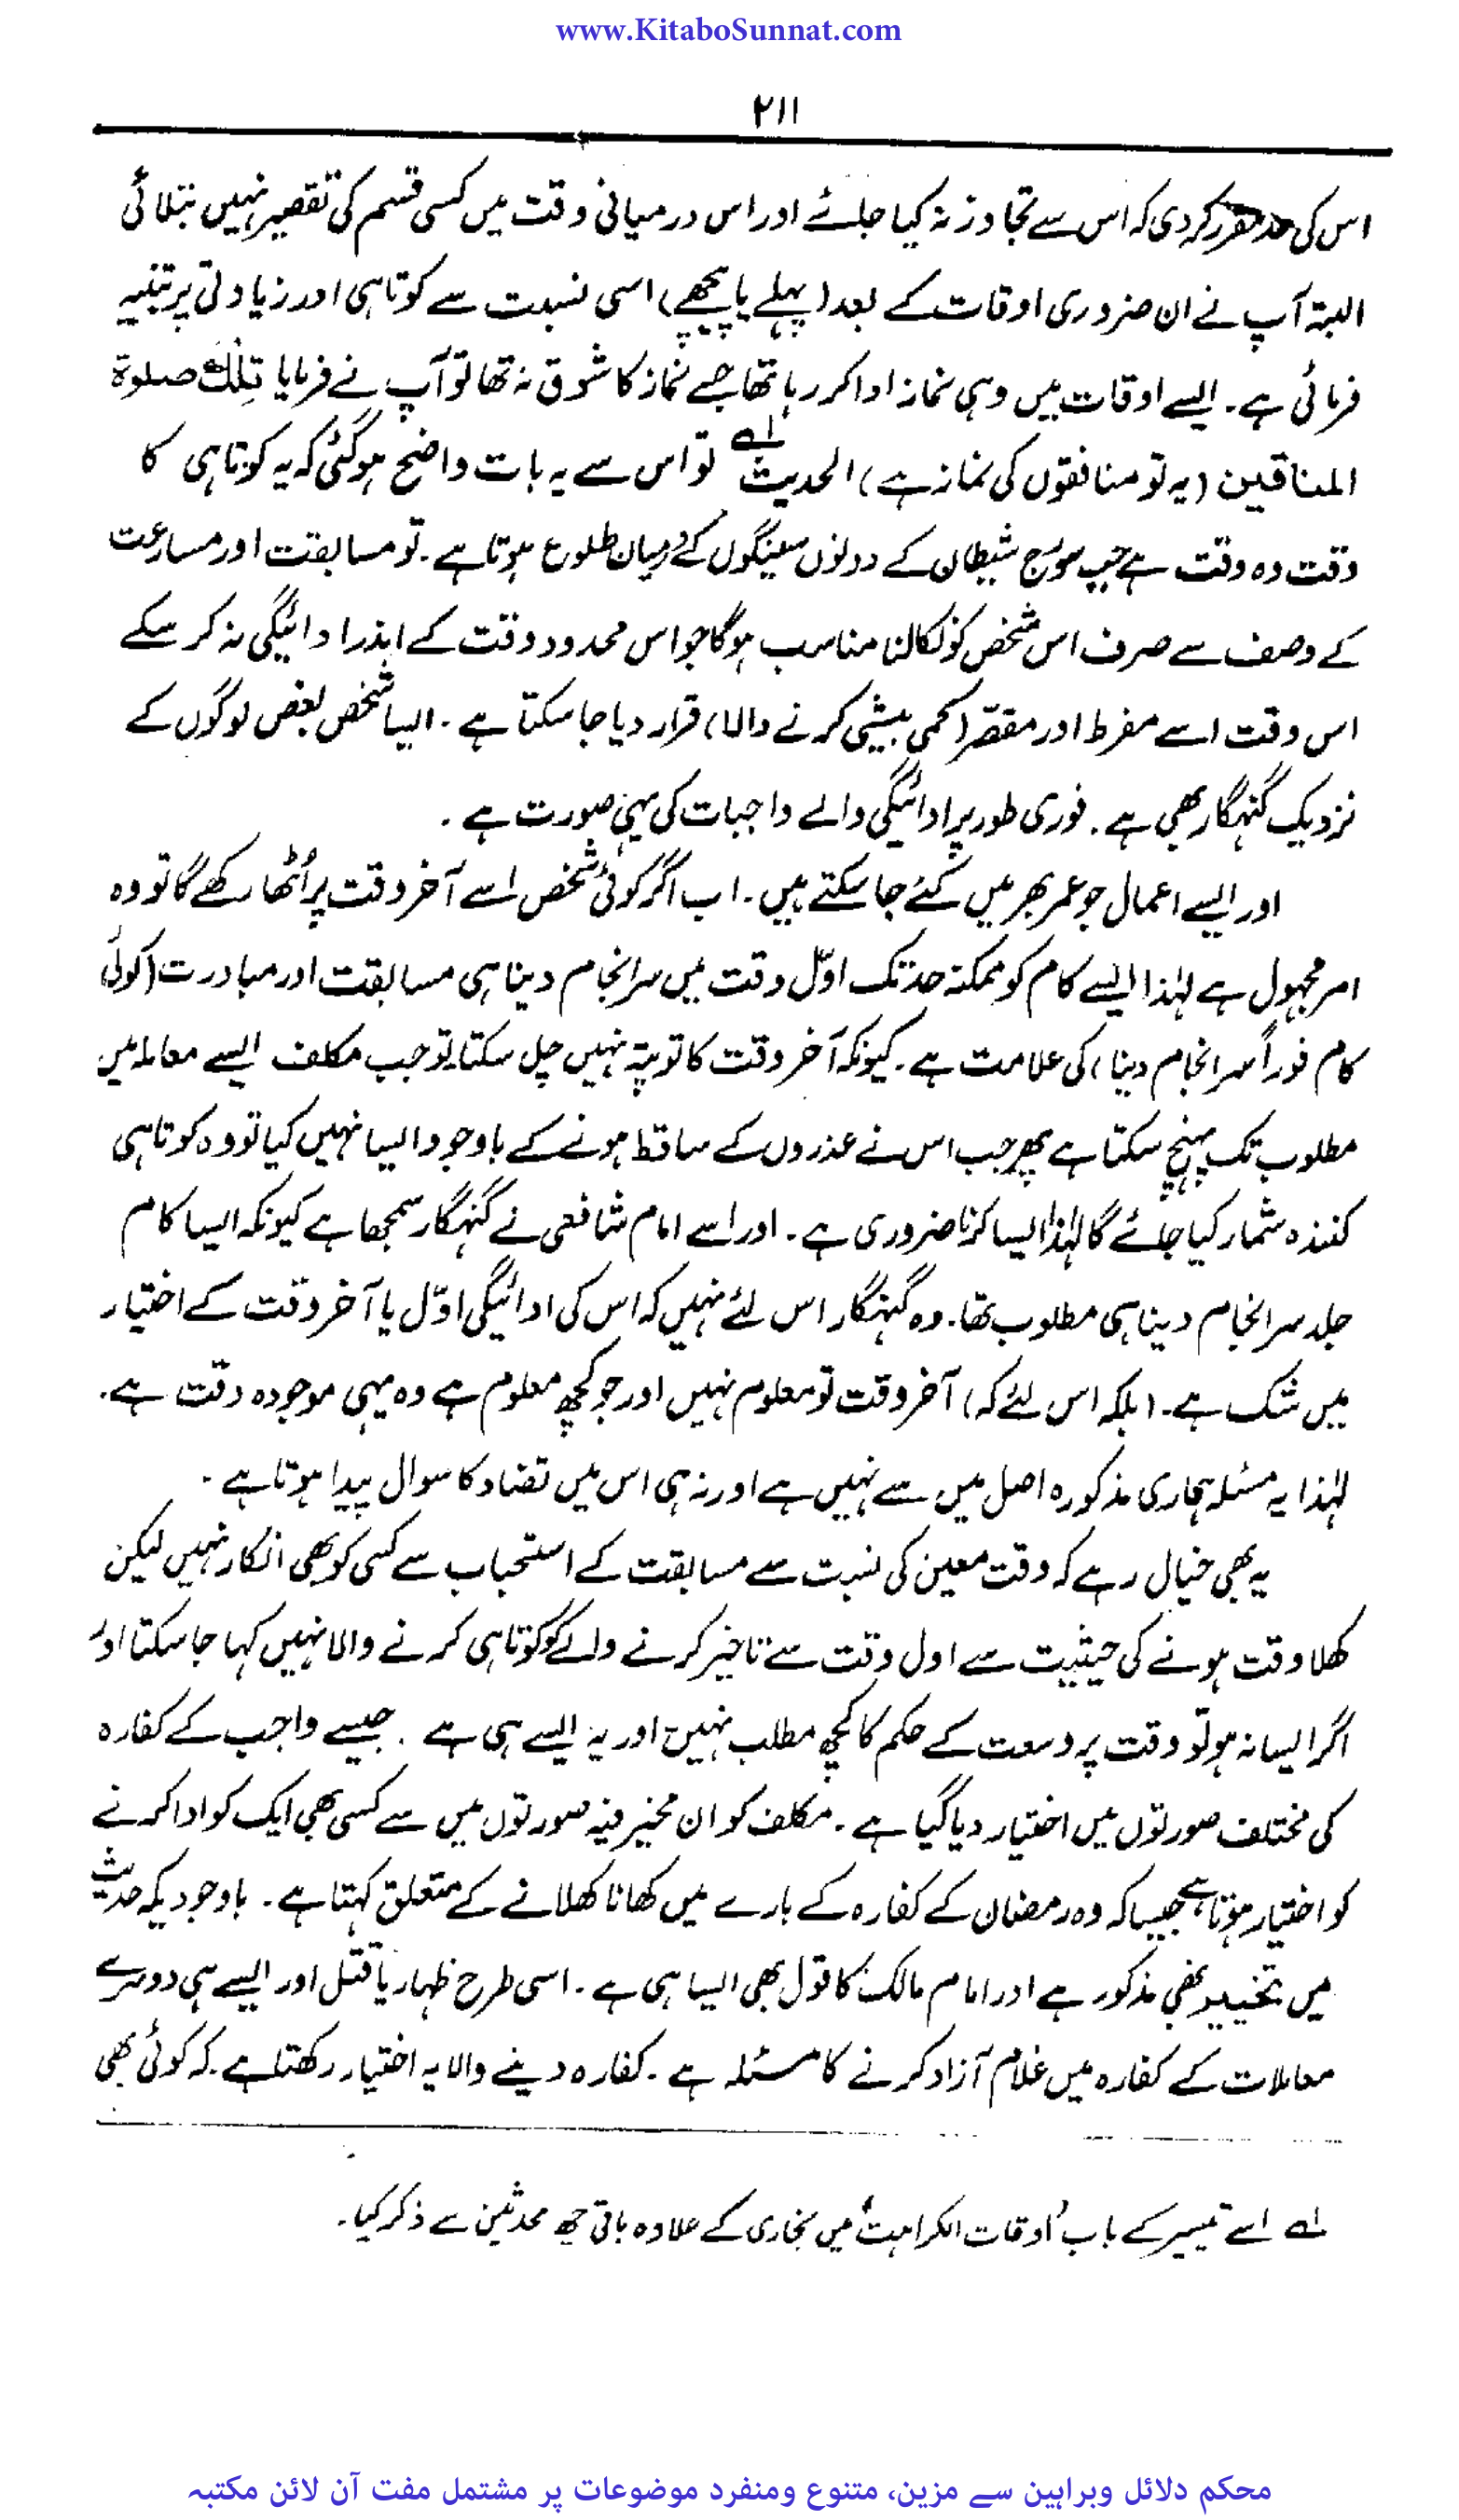 www.KitaboSunnat.com
۲۱۱
اس کی حد مقرر کر دی کہ اس سے تجاوز نہ کیا جائے اور اس درمیانی وقت میں کسی قسم کی تقصیر نہیں بتلائی
البتہ آپ نے ان ضروری اوقات کے بعد (پہلے یا پیچھے) اسی نسبت سے کوتاہی اور زیادتی پر تنبیہ
فرمائی ہے۔ ایسے اوقات میں وہی نماز ادا کر رہا تھا جسے نماز کا شوق نہ تھا تو آپ نے فرمایا تِلْكَ صلوة
المناقين (یہ تو منافقوں کی نماز ہے) الحدیث لے تو اس سے یہ بات واضح ہو گئی کہ یہ کوتاہی کا
وقت وہ وقت ہے جب سورج شیطان کے دونوں سینگوں کے درمیان طلوع ہوتا ہے۔ تو مسابقت اور مسارعت
کے وصف سے صرف اس شخص کو نکالنا مناسب ہوگا جو اس محدود وقت کے اندر ادائیگی نہ کر سکے
اس وقت اسے مفرط اور مقصّر (کمی بیشی کرنے والا) قرار دیا جا سکتا ہے۔ ایسا شخص بعض لوگوں کے
نزدیک گنہگار بھی ہے۔ فوری طور پر ادائیگی والے واجبات کی یہی صورت ہے۔
اور ایسے اعمال جو عمر بھر میں کئے جا سکتے ہیں۔ اب اگر کوئی شخص اسے آخر وقت پر اُٹھا رکھے گا تو وہ
امر مجہول ہے لہٰذا ایسے کام کو ممکنہ حد تک اوّل وقت میں سرانجام دینا ہی مسابقت اور مبادرت (کوئی
کام فوراً سرانجام دینا) کی علامت ہے۔ کیونکہ آخر وقت کا تو پتہ نہیں چل سکتا۔ تو جب مکلف ایسے معاملہ میں
مطلوب تک پہنچ سکتا ہے پھر جب اس نے عذروں کے ساقط ہونے کے باوجود ایسا نہیں کیا تو وہ کوتاہی
کنندہ شمار کیا جائے گا لہٰذا ایسا کرنا ضروری ہے۔ اور اسے امام شافعی نے گنہگار سمجھا ہے کیونکہ ایسا کام
جلد سرانجام دینا ہی مطلوب تھا۔ وہ گنہگار اس لئے نہیں کہ اس کی ادائیگی اوّل یا آخر وقت کے اختیار
میں شک ہے۔ (بلکہ اس لئے کہ) آخر وقت تو معلوم نہیں اور جو کچھ معلوم ہے وہ یہی موجودہ وقت ہے۔
لہٰذا یہ مسئلہ ہماری مذکورہ اصل میں سے نہیں ہے اور نہ ہی اس میں تضاد کا سوال پیدا ہوتا ہے۔
یہ بھی خیال رہے کہ وقت معین کی نسبت سے مسابقت کے استحباب سے کسی کو بھی انکار نہیں لیکن
کھلا وقت ہونے کی حیثیت سے اول وقت سے تاخیر کرنے والے کو کوتاہی کرنے والا نہیں کہا جا سکتا اور
اگر ایسا نہ ہو تو وقت پر وسعت کے حکم کا کچھ مطلب نہیں اور یہ ایسے ہی ہے۔ جیسے واجب کے کفارہ
کی مختلف صورتوں میں اختیار دیا گیا ہے۔ مکلف کو ان مخیر فیہ صورتوں میں سے کسی بھی ایک کو ادا کرنے
کو اختیار ہوتا ہے جیسا کہ وہ رمضان کے کفارہ کے بارے میں کھانا کھلانے کے متعلق کہتا ہے۔ باوجودیکہ حدیث
میں تخییر بھی مذکور ہے اور امام مالک کا قول بھی ایسا ہی ہے۔ اسی طرح ظہار یا قتل اور ایسے ہی دوسرے
معاملات کے کفارہ میں غلام آزاد کرنے کا مسئلہ ہے۔ کفارہ دینے والا یہ اختیار رکھتا ہے۔ کہ کوئی بھی
لے اسے تیسیر کے باب "اوقات الکراہت" میں بخاری کے علاوہ باقی چھ محدثین سے ذکر کیا۔
محکم دلائل وبراہین سے مزین، متنوع ومنفرد موضوعات پر مشتمل مفت آن لائن مکتبہ